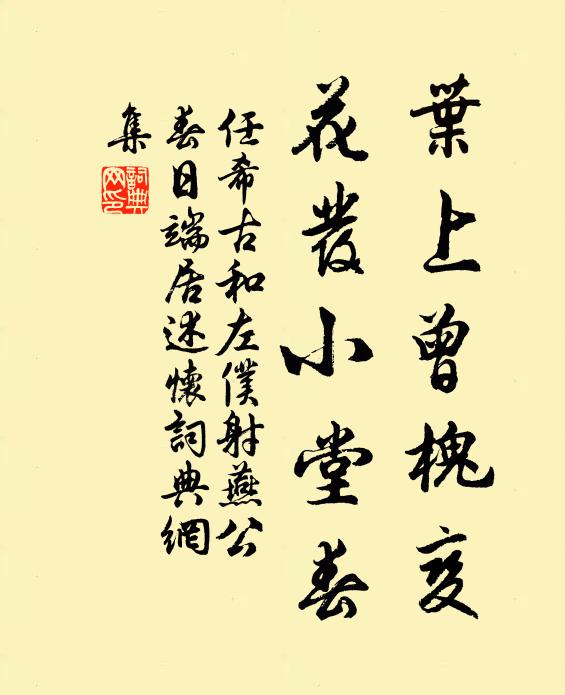 葉上曾槐变
花發小堂春
任希古和左僕射燕公
春日端居述懷詞典網
集
詞典
网印